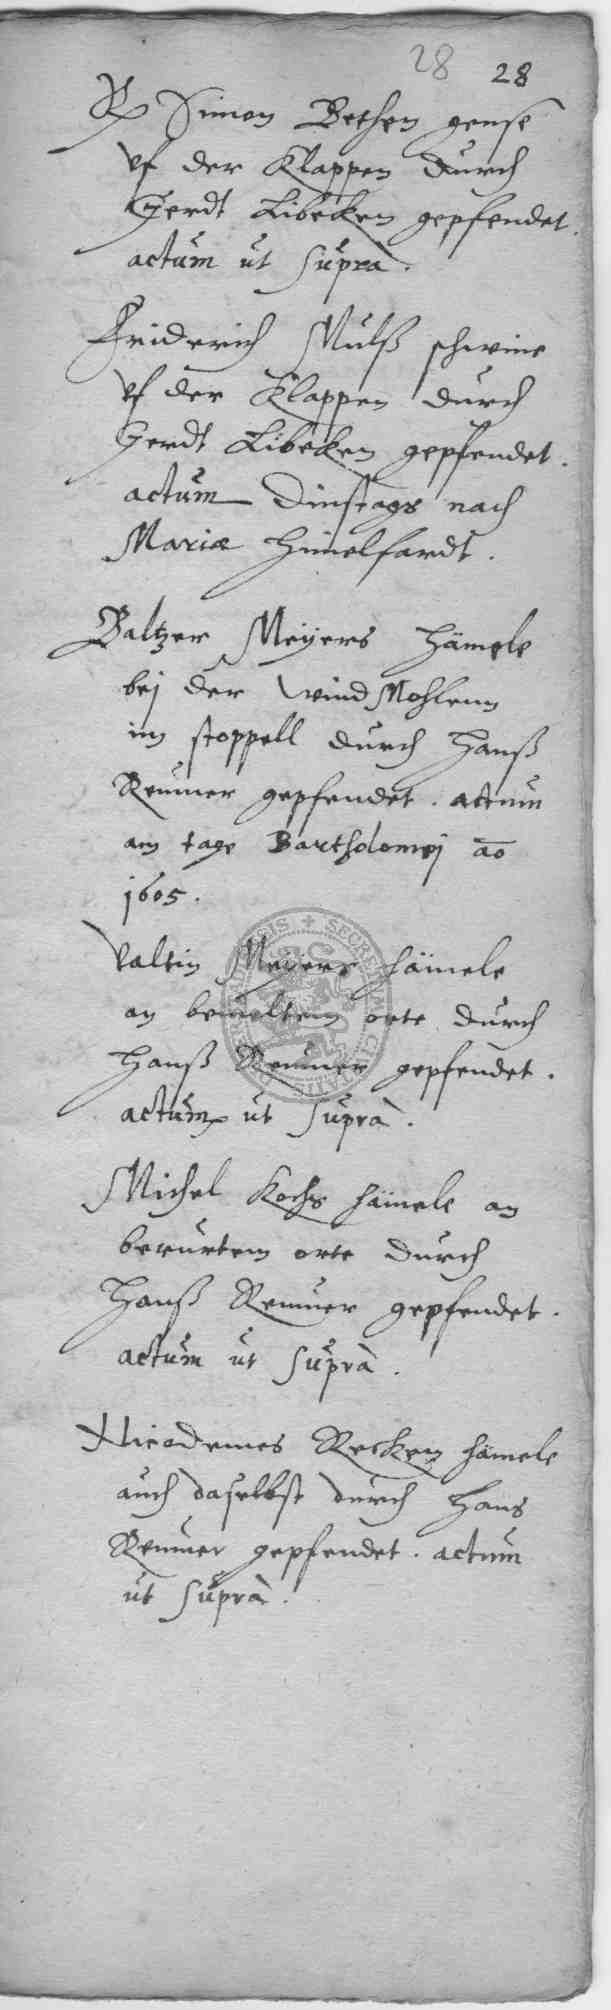 28 28
Simon Bethen gense
vf der Klappen durch
Gerdt Libeken gepfendet.
actum ut suprà.
Friderich Mulß schwine
vf der Klappen durch
Gerdt Libeken gepfendet.
actum Dinstags nach
Mariæ Himelfardt.
Baltzer Meÿers hämele
bej der Wind Mohlenn
im stoppell durch Hanß
Remmer gepfendet. actum
am tage Bartholomej ao
1605.
Valtin Meÿers hämele
an bemeltem orte durch
Hanß Remmer gepfendet.
actum ut suprà.
Michel Kochs hämele an
berurtem orte durch
Hanß Remmer gepfendet.
actum ut suprà.
Nicodemes Recken hämele
auch daselbst durch Hans
Remmer gepfendet. actum
ut suprà.